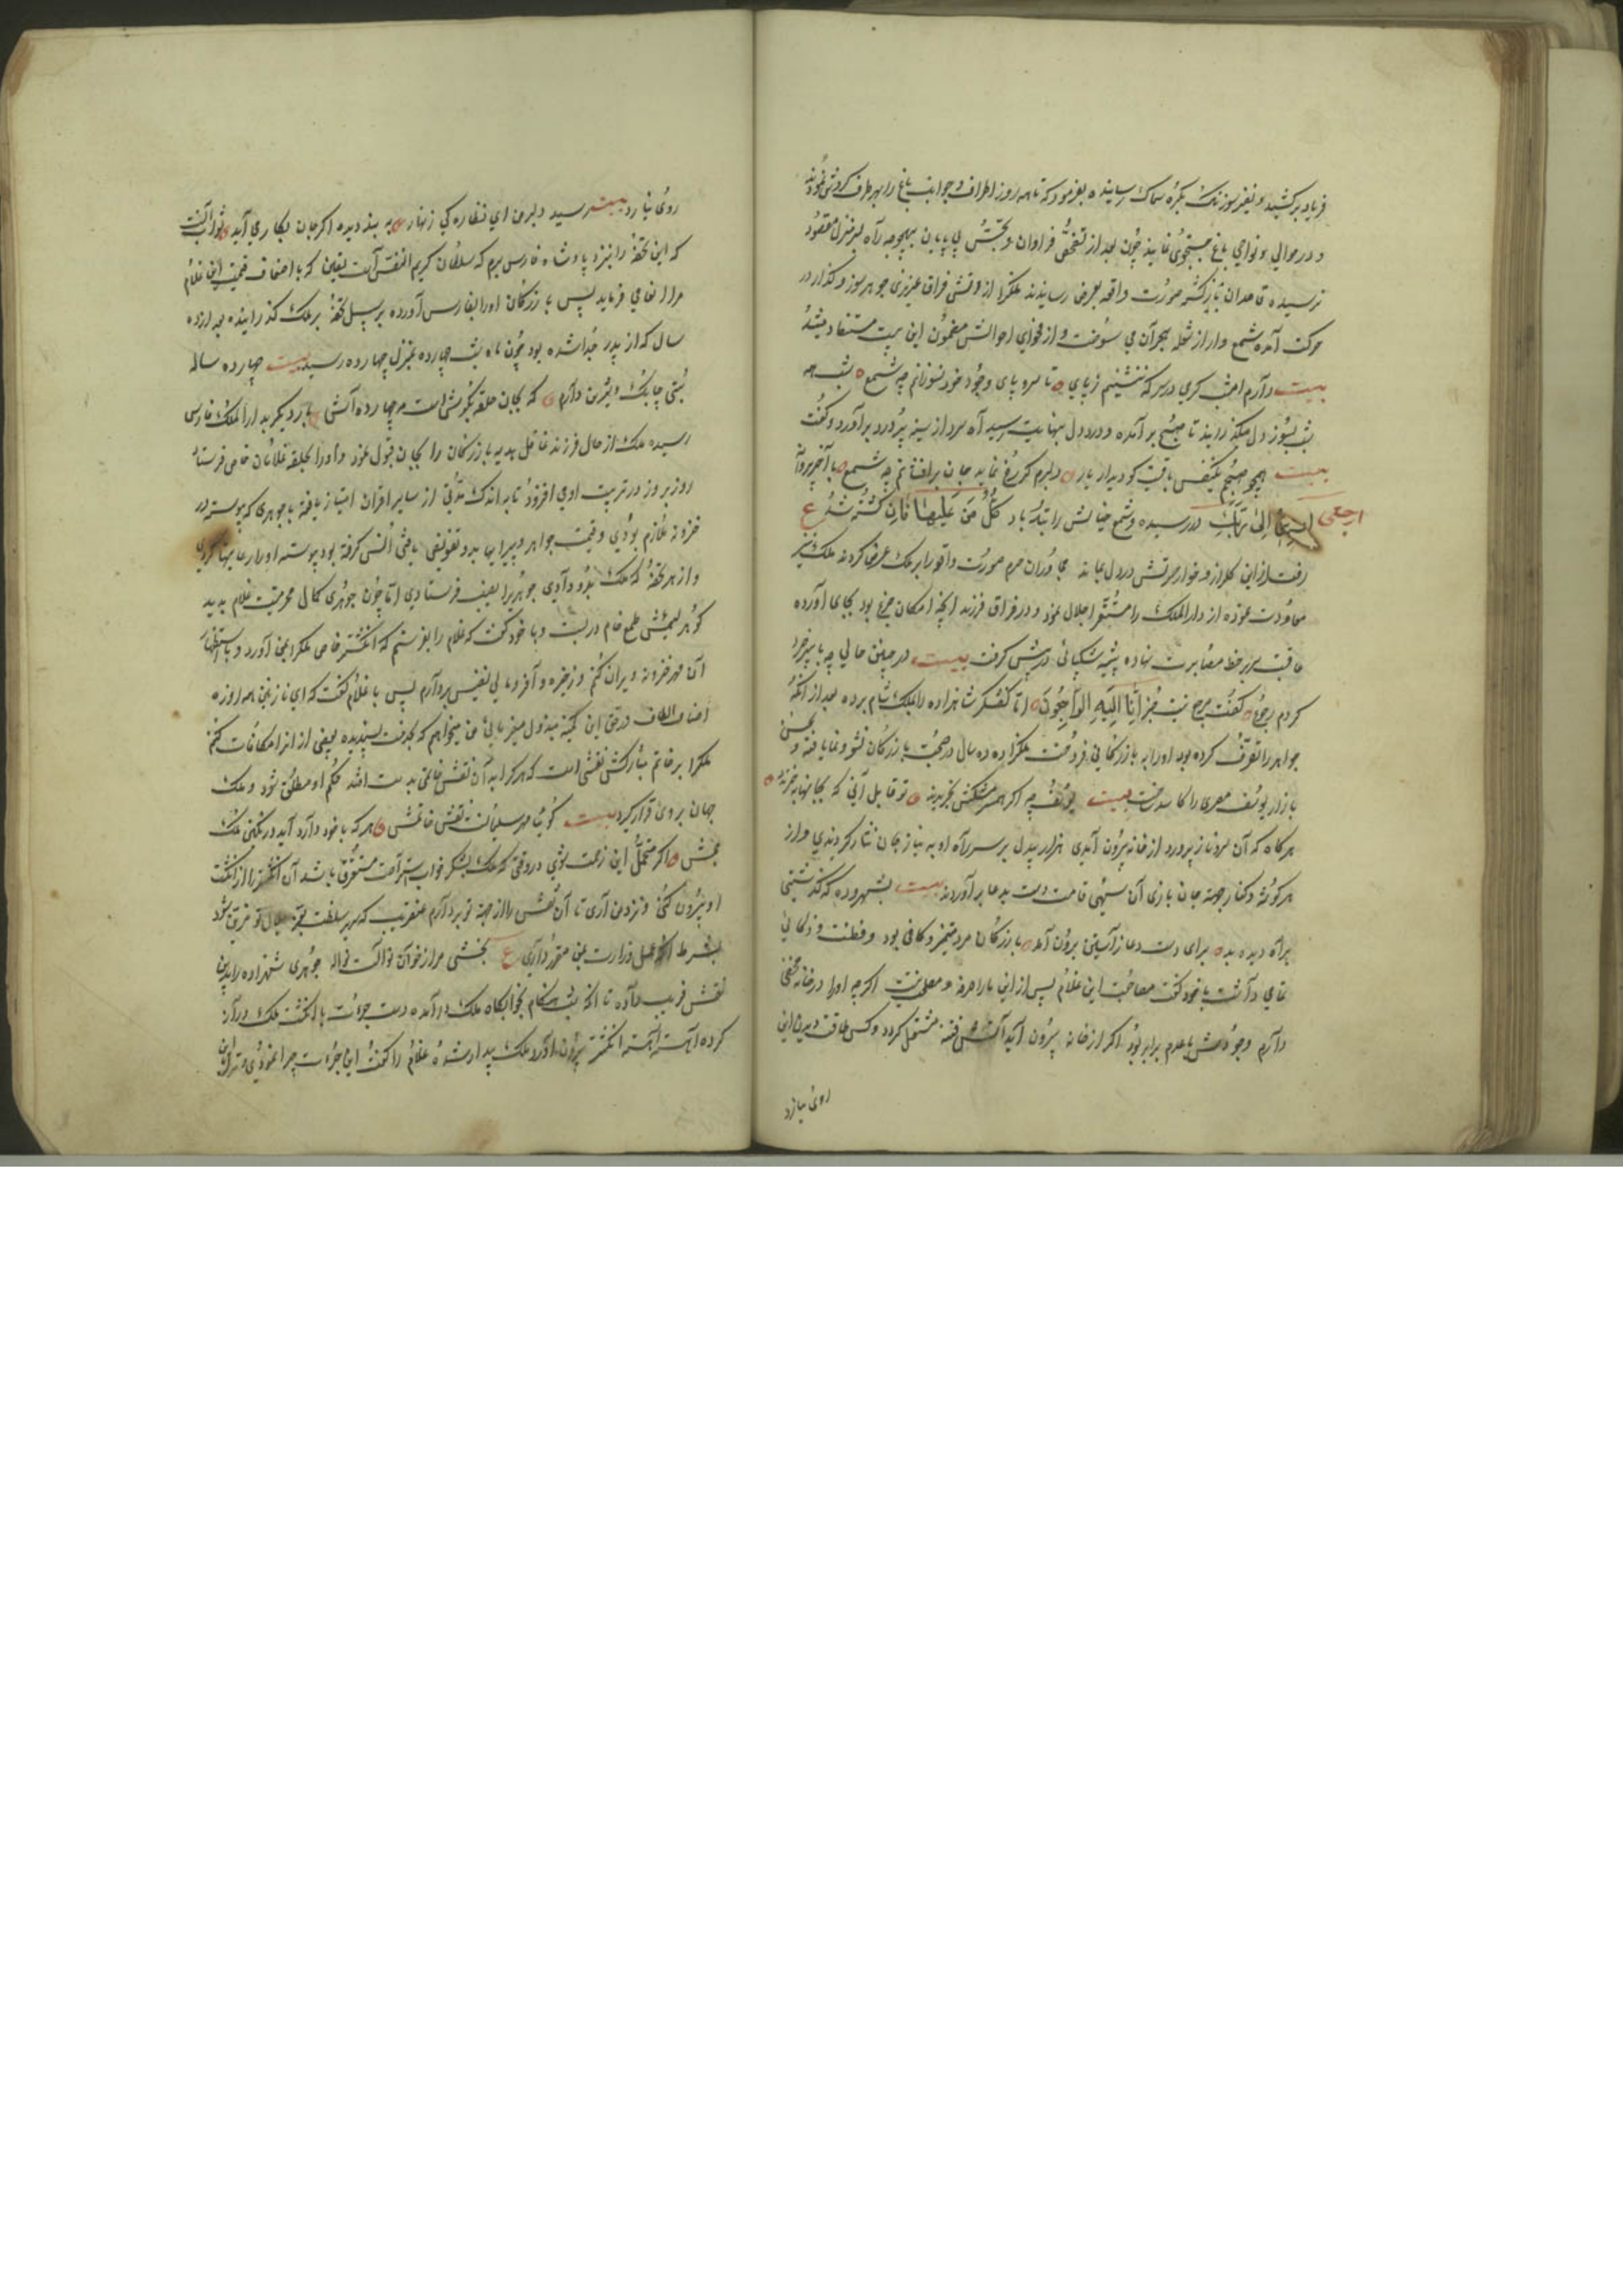 فریاد برکشید و نفیر سوزناک بکره سماک رسانیده بفرمود که تا همه روز اطراف و جوانب باغ را بهر طرف کردش نمودند
و در حوالی و نواحی باغ جستجوی نمایند چون بعد از تفحص فراوان و تجسس بی پایان بهیچوجه راه بسر منزل مقصود
نرسیده قاصدان بازکشته صورت واقعه بعرض رسانیدند ملکرا از وقتی فراق عزیزی جوهر سوز و کداز در
حرکت آمده شمع وار از شعله هجران می سوخت و از فحوای احوالش مضمون این بیت مستفاد میشد
بیت دارم امشب کرمی در سر که ننشینم ز پای تا سر و پای وجود خود نسوزانم چو شمع شب همه
شب بسوز دل میکذرانید تا صبح برآمده و درد دل بنهایت رسید آه سرد از سینه پر درد برآورد و کفت
بیت همچو صبحم یکنفس باقیست کو دیدار یار دلبرم کو رخ نماید جان برافشانم چو شمع با آخر پروانه
ارجعی الی ربک در رسیده و شمع حیاتش را تندباد کل من علیها فان کشته شد ع
رفت از این کلزار و خار حسرتش در دل بماند مجاوران حرم صورت واقعه را بر ملک عرض کردند ملک نیز
معاودت نموده از دار الملک را مستقر اجلال نمود و در فراق فرزند آنچه امکان جزع بود بجای آورده
عاقبت سر بر خط مصابرت نهاده پیشه شکیبائی در پیش کرفت بیت در چنین حالی چو با پیر خرد
کردم رجوع کفت مرجع نیست جز انا الیه الراجعون اما کفشکر شاهزاده را بملک شام برده بعد از آنکه
جواهر را تصرف کرده بود او را به بازرکانی فروخت ملکزاده ده سال در صحبت بازرکان نشو و نما یافته و بحسن
بازار یوسف مصری را کاسد ساخت بیت یوسف چه اکر همسر مشکش بخریدند تو قابل آنی که بجانها بخرندت
هرکاه که آن سرو ناز پرورد از خانه بیرون آمدی هزار بیدل بر سر راه او به نیاز جان نثار کردندی و از
هر کوشه و کنار جهة جان بازی آن سهی قامت دست بدعا برآوردند بیت بشهر ورده که کذشتی
براه دیده بده برای دست دعا ز آستین برون آمد بازرکان مرد متمیز و کافی بود و فطنت و ذکائی
تمامی داشت با خود کفت مصاحبت این غلام پس از این ما را صرفه و مصلحی نیست اکر چه او را در خانه مخفی
دارم وجودش با عدم برابر بود اکر از خانه بیرون آید آتش فتنه مشتعل کردد و کسی طاقت دیدن این
روی نیارد
روی نیارد بیت رسید دلبر من ای نظاره کی زنهار به بند دیده اکر جان بکار می آید ثواب آنست
که این تحفه را بنزد پادشاه فارس برم که سلطان کریم النفس است یقین که باضعاف قیمت این غلام
مرا انعامی فرماید پس بازرکان او را بفارس آورده بر سبیل تحفه بر ملک کذرانیده بعد از ده
سال که از پدر جدا شده بود چون ماه شب چهارده بمنزل چهارده رسید بیت چهارده ساله
بتی چابک و شیرین دارم که بجان حلقه بکوش است مه چهارده اش بار دیکر بدار الملک فارس
رسیده ملک از حال فرزند غافل هدیه بازرکان را بجان قبول نمود و او را بحلقه غلامان خاص فرستاد
روز بروز در تربیت او می افزود تا به اندک مدتی از سایر اقران امتیاز یافته با جوهری که پیوسته در
خزونه ملازم بودی و قیمت جواهر و پیرایها بدو تفویض یافتی انس کرفته بود پیوسته او را رعایتها کردی
و از هر تحفه که ملک بدو دادی جوهری را نصیب فرستادی اما چون جوهری کمال محرمیت غلام بدید
کوهر لعبتش طمع خام در بست و با خود کفت که غلام را بفرستم که انکشتر خاص ملکرا بمن آورد و باستظهار
آن مهر خزونه ویران کنم و ذخیره وافر و مالی نفیس بردارم پس با غلام کفت که ای نازنین همه روزه
اصناف الطاف در حق این کمینه مبذول میفرمائی من میخواهم که بخدمت پسندیده بعضی از انرا مکافات کنم
ملکرا بر خاتم مبارکش نقشی است که هر کرا به آن نقش خاتمی بدست افتد حکم او مطلق شود و ملک
جهان بر وی قرار کیرد بیت کوئیا مهر سلیمانست نقش خاتمش هر که با خود دارد آید در نکین ملک
جمش اکر متحمل این زحمت شوی در وقتی که ملک بشکر خواب استراحت مستغرق باشد آن انکشتر را از انکشت
او بیرون کنی و نزد من آری تا آن نقش را از جهة تو بردارم عنقریب که سریر سلطنت بفر جمال تو مزین شود
بشرط آنکه عمل وزارت بمن مقرر داری ع بخشی مرا ز خوان نوالت نواله جوهری شهزاده را بدین
نقش فریب داده تا آنکه شب هنکام بخوابکاه ملک در آمده دست جرأت با انکشت ملک دراز
کرده آهسته آهسته انکشتر بیرون آورد ملک بیدار شده غلام را کفت این جرأت چرا نمودی و ترا این